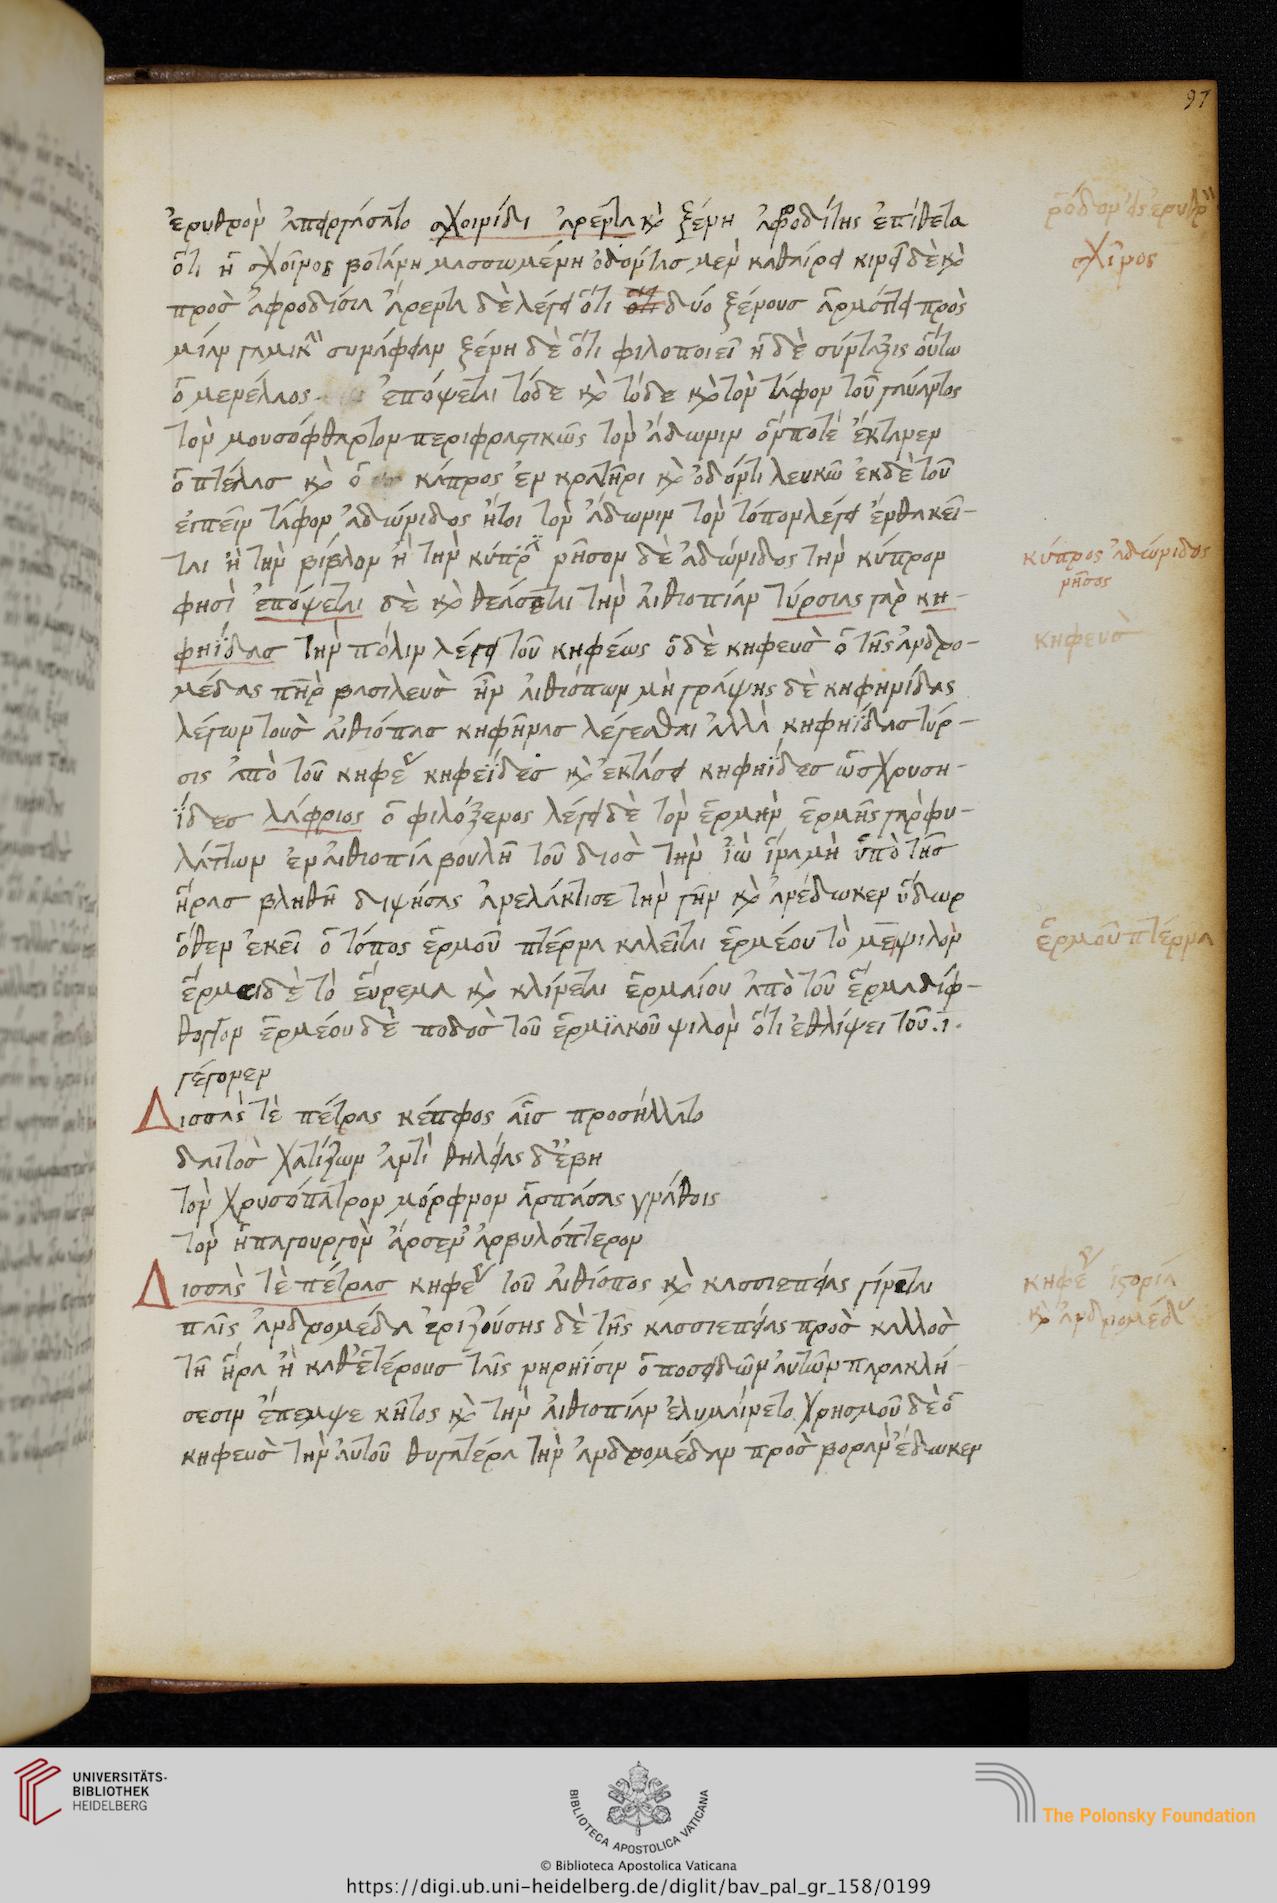 97
ἐρυθρὸν ἀπειργάσατο σχοινίδι ἀρέντα καὶ ξένη ἀφροδίτης ἐπίθετα
ὅτι ἡ σχοῖνος βοτάνη μασσωμένη ὀδόντας μὲν καθαίρει κινεῖ δὲ καὶ
πρὸς ἀφροδίσια ἀρέντα δὲ λέγει ὅτι δύο ξένους ἁρμόττει πρὸς
μίαν γαμικὴν συνάφειαν ξένη δὲ ὅτι φιλοποιεῖ ἡ δὲ σύνταξις οὕτω
ὁ μενέλαος ἐπόψεται τόδε καὶ τόδε καὶ τὸν τάφον τοῦ γαύαντος
τὸν μουσόφθαρτον περιφραστικῶς τὸν ἄδωνιν ὅν ποτὲ ἔκτανεν
ὁ πτέλας καὶ ὁ κάπρος ἐν κραντῆρι καὶ ὀδόντι λευκῶ ἐκ δὲ τοῦ
εἰπεῖν τάφον ἀδώνιδος ἤτοι τὸν ἄδωνιν τὸν τόπον λέγει ἔνθα κεῖ-
ται ἢ τὴν βίβλον ἢ τὴν κύπρον νῆσον δὲ ἀδώνιδος τὴν κύπρον
φησὶ ἐπόψεται δὲ καὶ θεάσεται τὴν αἰθιοπίαν τύρσιας γὰρ κη-
φηΐδας τὴν πόλιν λέγει τοῦ κηφέως ὁ δὲ κηφεὺς ὁ τῆς ἀνδρο-
μέδας πατὴρ βασιλεὺς ἦν αἰθιόπων μὴ γράψης δὲ κηφηνίδας
λέγων τοὺς αἰθίοπας κηφῆνας λέγεσθαι ἀλλὰ κηφηΐδας τύρ-
σις ἀπὸ τοῦ κηφέως κηφεΐδες καὶ ἐκτάσει κηφηΐδες ὡς χρυση-
ΐδες λάφριος ὁ φιλόξενος λέγει δὲ τὸν ἑρμῆν ἑρμῆς γὰρ φυ-
λάττων ἐν αἰθιοπία βουλῆ τοῦ διὸς τὴν ἰὼ ἵνα μὴ ὑπὸ τῆς
ἥρας βληθῆ διψήσας ἀνελάκτισε τὴν γῆν καὶ ἀνέδωκεν ὕδωρ
ὅθεν ἐκεῖ ὁ τόπος ἑρμοῦ πτέρνα καλεῖται ἑρμέου τὸ με ψιλὸν
ἕρμαι δὲ τὸ εὕρεμα καὶ κλίνεται ἑρμαίου ἀπὸ τοῦ ἕρμα δίφ-
θογγον ἑρμέου δὲ ποδὸς τοῦ ἑρμϊακοῦ ψιλὸν ὅτι ἐθλίψει τοῦ .ι.
γέγονεν
Δισσὰς τὲ πέτρας κέπφος αἷς προσήλλατο
δαιτὸς χατίζων ἀντὶ θηλείας δ' ἔβη
τὸν χρυσόπατρον μόρφνον ἁρπάσας γνάθοις
τὸν ἡπατουργὸν ἄρσεν' ἀρβυλόπτερον
Δισσὰς τὲ πέτρας κηφέως τοῦ αἰθίοπος καὶ κασσιεπείας γίνεται
παῖς ἀνδρομέδα ἐριζούσης δὲ τῆς κασσιεπείας πρὸς κάλλος
τῆ ἥρα ἢ καθ' ἑτέρους ταῖς νηρηΐσιν ὁ ποσειδῶν αὐτῶν παρακλή-
σεσιν ἔπεμψε κῆτος καὶ τὴν αἰθιοπίαν ἐλυμαίνετο χρησμοῦ δὲ ὁ
κηφεὺς τὴν αὐτοῦ θυγατέρα τὴν ἀνδρομέδαν πρὸς βορὰν ἔδωκεν
σχῖνος
κύπρος ἀδώνιδος
νῆσος
κηφεὺς
ἑρμοῦ πτέρνα
κηφέως ἱστορία
καὶ ἀνδρομέδας
UNIVERSITÄTS-
BIBLIOTHEK
HEIDELBERG
BIBLIOTECA APOSTOLICA VATICANA
The Polonsky Foundation
© Biblioteca Apostolica Vaticana
https://digi.ub.uni-heidelberg.de/diglit/bav_pal_gr_158/0199